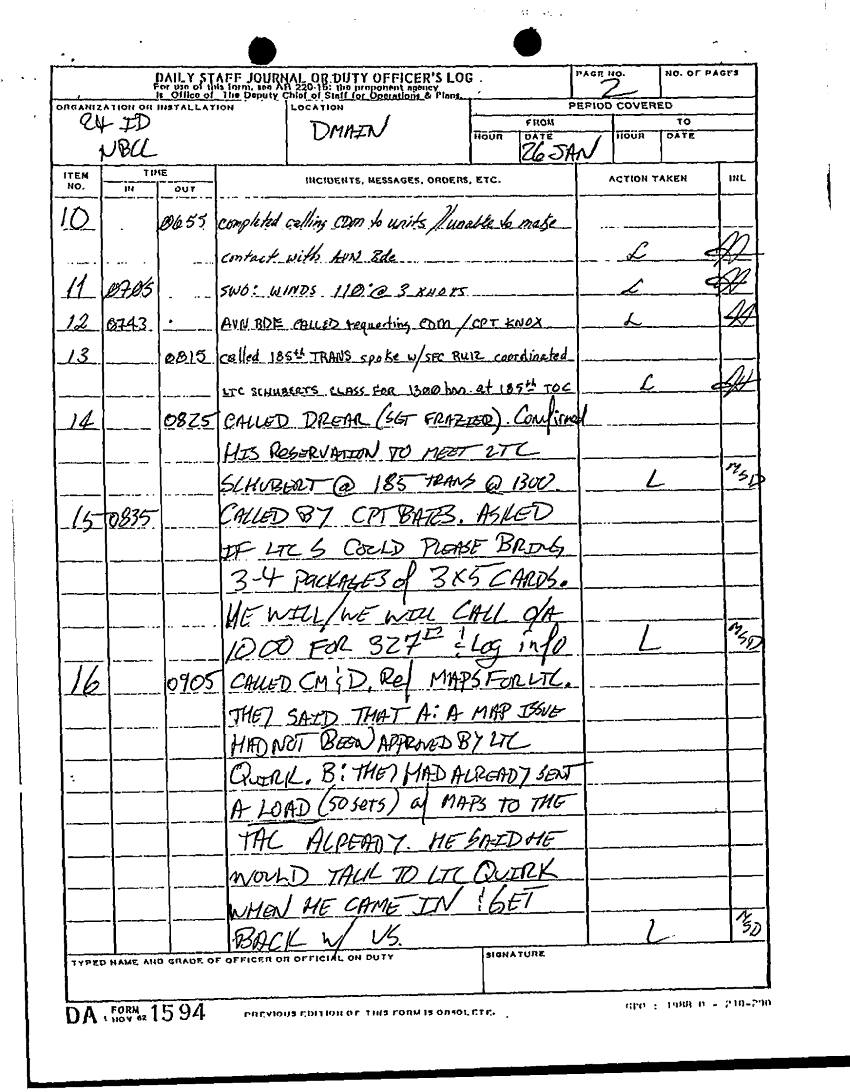 DAILY STAFF JOURNAL OR DUTY OFFICER'S LOG
For use of this form, see AR 220-15; the proponent agency
is Office of The Deputy Chief of Staff for Operations & Plans.
PAGE NO.
2
NO. OF PAGES
ORGANIZATION OR INSTALLATION
24 ID
NBCC
LOCATION
DMAIN
PERIOD COVERED
FROM
TO
HOUR DATE HOUR DATE
26 JAN
ITEM NO. TIME INCIDENTS, MESSAGES, ORDERS, ETC. ACTION TAKEN INL
IN OUT
10 0655 completed calling CDM to units // unable to make
contact with AVN Bde L
11 0705 SWO: WINDS 110° @ 3 KNOTS L
12 0743 AVN BDE CALLED requesting CDM / CPT KNOX L
13 0815 called 185th TRANS spoke w/SEC RUIZ coordinated
LTC SCHUBERTS CLASS FOR 1300 hrs. at 185th TOC L
14 0825 CALLED DREAR (SGT FRAZIER). Confirmed
HIS RESERVATION TO MEET LTC
SCHUBERT @ 185 TRANS @ 1300. L MSD
15 0835 CALLED BY CPT BATES. ASKED
IF LTC S COULD PLEASE BRING
3-4 PACKAGES of 3X5 CARDS.
HE WILL/WE WILL CALL O/A
1000 FOR 327th & Log info L MSD
16 0905 CALLED CM&D, Ref MAPS FOR LTC.
THEY SAID THAT A: A MAP ISSUE
HAD NOT BEEN APPROVED BY LTC
QUIRK. B: THEY HAD ALREADY SENT
A LOAD (50 sets) of MAPS TO THE
TAC ALREADY. HE SAID HE
WOULD TALK TO LTC QUIRK
WHEN HE CAME IN & GET
BACK W/ US. L MSD
TYPED NAME AND GRADE OF OFFICER OR OFFICIAL ON DUTY
SIGNATURE
DA FORM 1 NOV 62 1594
PREVIOUS EDITION OF THIS FORM IS OBSOLETE.